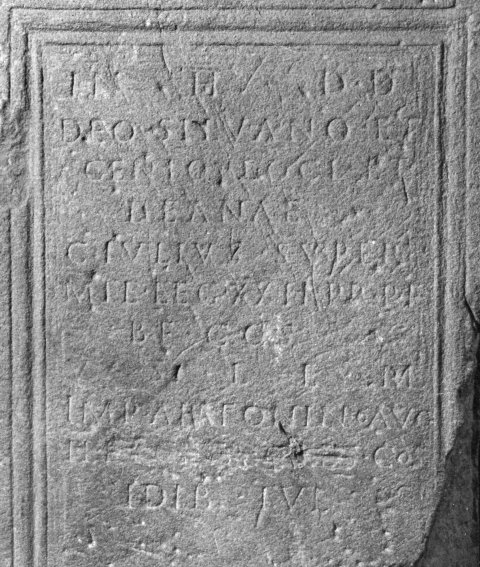 IN H D D
DEO SILVANO ET
GENIO LOCI ET
DEANAE
C IVLIVS SVPER
MIL LEG XXII PR P F
BF COS
L L M
IMP ANTONINO AVG
II CO
IDIB IVL